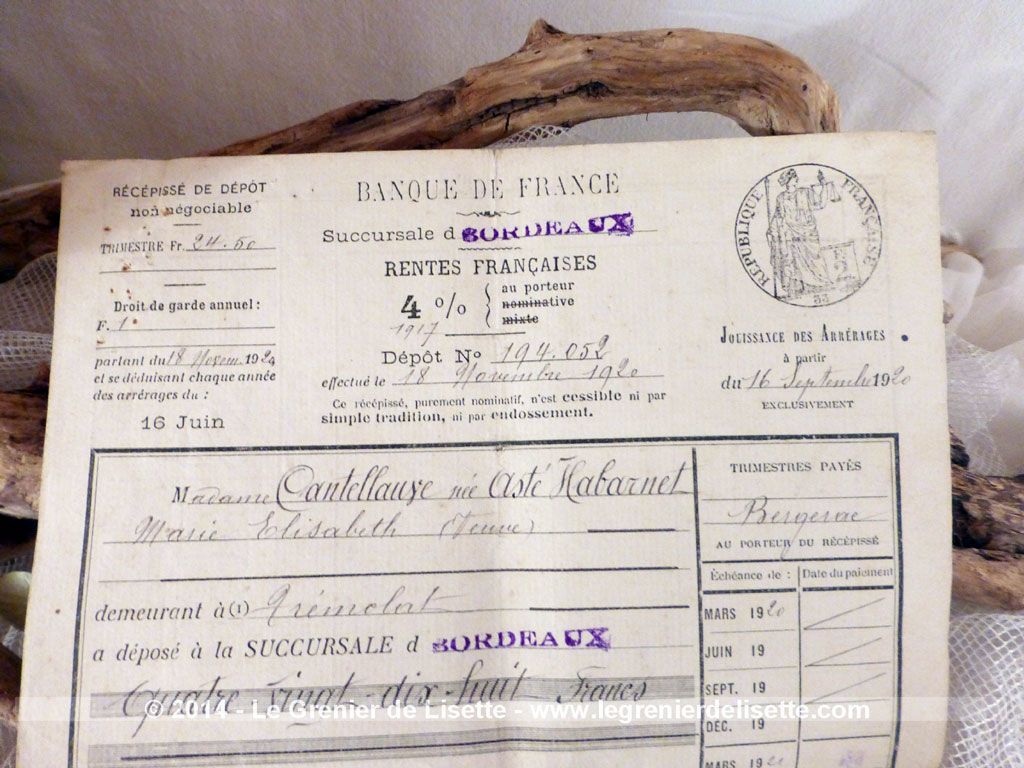 RÉCÉPISSÉ DE DÉPÔT
non négociable
TRIMESTRE Fr. 24.50
Droit de garde annuel :
F. 1
partant du 18 Novem. 1920
et se déduisant chaque année
des arrérages du :
16 Juin
BANQUE DE FRANCE
Succursale d BORDEAUX
RENTES FRANÇAISES
4 %
1917
au porteur
nominative
mixte
Dépôt No 194.052
effectué le 18 Novembre 1920
Ce récépissé, purement nominatif, n'est cessible ni par
simple tradition, ni par endossement.
RÉPUBLIQUE FRANÇAISE
JOUISSANCE DES ARRÉRAGES
à partir
du 16 Septembre 1920
EXCLUSIVEMENT
Madame Cantellauve née Asté Habarnet
Marie Elisabeth (Veuve)
demeurant à (1)
a déposé à la SUCCURSALE d BORDEAUX
Quatre-vingt-dix-huit Francs
TRIMESTRES PAYÉS
Bergerac
AU PORTEUR DU RÉCÉPISSÉ
Échéance de : Date du paiement
MARS 1920
JUIN 19
SEPT. 19
DÉC. 19
MARS 1921
© 2014 - Le Grenier de Lisette - www.legrenierdelisette.com